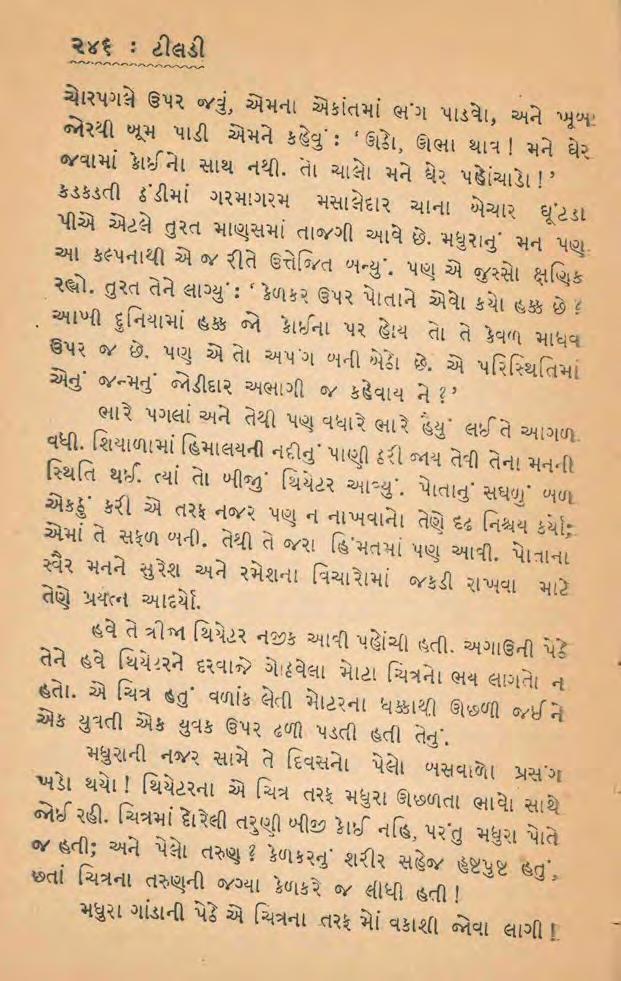 ૨૪૬ : ટીલડી
ચોરપગલે ઉપર જવું, એમના એકાંતમાં ભંગ પાડવો, અને ખૂબ
જોરથી બૂમ પાડી એમને કહેવું : ‘ ઊઠો, ઊભા થાવ ! મને ઘેર
જવામાં કોઈનો સાથ નથી. તો ચાલો મને ઘેર પહોંચાડો ! ’
કડકડતી ઠંડીમાં ગરમાગરમ મસાલેદાર ચાના બેચાર ઘૂંટડા
પીએ એટલે તુરત માણસમાં તાજગી આવે છે. મધુરાનું મન પણ
આ કલ્પનાથી એ જ રીતે ઉત્તેજિત બન્યું. પણ એ જુસ્સો ક્ષણિક
રહ્યો. તુરત તેને લાગ્યું : ‘ કેળકર ઉપર પોતાને એવો કયો હક્ક છે ?
આખી દુનિયામાં હક્ક જો કોઈના પર હોય તો તે કેવળ માધવ
ઉપર જ છે. પણ એ તો અપંગ બની બેઠો છે. એ પરિસ્થિતિમાં
એનું જન્મનું જોડીદાર અભાગી જ કહેવાય ને ? ’
ભારે પગલાં અને તેથી પણ વધારે ભારે હૈયું લઈ તે આગળ
વધી. શિયાળામાં હિમાલયની નદીનું પાણી ઠરી જાય તેવી તેના મનની
સ્થિતિ થઈ. ત્યાં તો બીજું થિયેટર આવ્યું. પોતાનું સઘળું બળ
એકઠું કરી એ તરફ નજર પણ ન નાખવાનો તેણે દૃઢ નિશ્ચય કર્યો;
એમાં તે સફળ બની. તેથી તે જરા હિંમતમાં પણ આવી. પોતાના
સ્વૈર મનને સુરેશ અને રમેશના વિચારોમાં જકડી રાખવા માટે
તેણે પ્રયત્ન આદર્યો.
હવે તે ત્રીજા થિયેટર નજીક આવી પહોંચી હતી. અગાઉની પેઠે
તેને હવે થિયેટરને દરવાજે ગોઠવેલા મોટા ચિત્રનો ભય લાગતો ન
હતો. એ ચિત્ર હતું વળાંક લેતી મોટરના ધક્કાથી ઊછળી જઈને
એક યુવતી એક યુવક ઉપર ઢળી પડતી હતી તેનું.
મધુરાની નજર સામે તે દિવસનો પેલો બસવાળો પ્રસંગ
ખડો થયો ! થિયેટરના એ ચિત્ર તરફ મધુરા ઊછળતા ભાવો સાથે
જોઈ રહી. ચિત્રમાં દોરેલી તરુણી બીજી કોઈ નહિ, પરંતુ મધુરા પોતે
જ હતી; અને પેલો તરુણ ? કેળકરનું શરીર સહેજ હૃષ્ટપુષ્ટ હતું,
છતાં ચિત્રના તરુણની જગ્યા કેળકરે જ લીધી હતી !
મધુરા ગાંડાની પેઠે એ ચિત્રના તરફ મોં વકાશી જોવા લાગી !